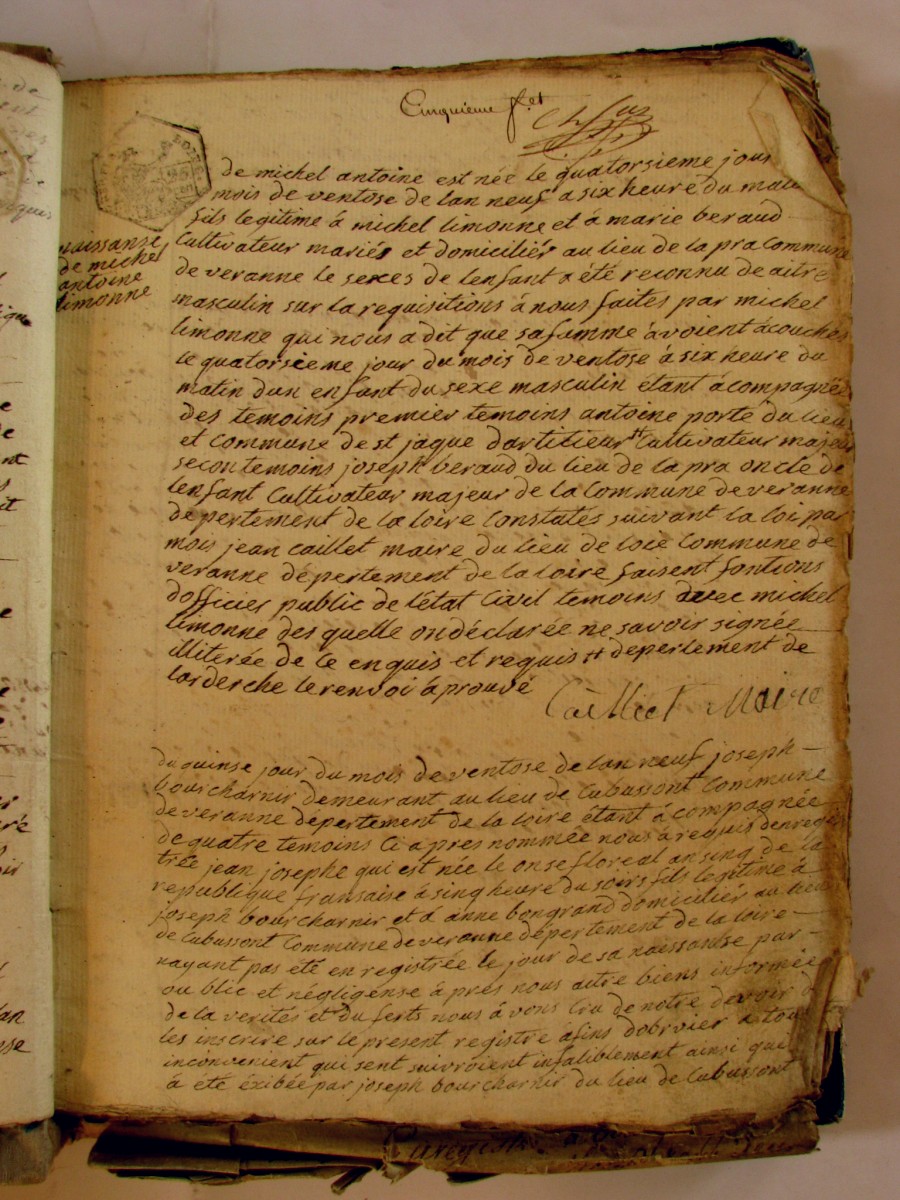 Cinquième f.et
naissanse
de michel
antoine
limonne
de michel antoine est née le quatorsieme jour
mois de ventose de lan neuf a six heure du matin
fils legitime à michel limonne et à marie beraud
Cultivateur mariés et domiciliés au lieu de la pra Commune
de veranne le sexes de lenfant a été reconnu de aitre
masculin sur la requisitions à nous faites par michel
limonne qui nous a dit que sa famme àvoient àcouchés
le quatorsieme jour du mois de ventose à six heure du
matin dun enfant du sexe masculin étant àcompagnée
des temoins premier temoins antoine porte du lieu
et commune de st jaque dartitieur # Cultivateur majeur
secon temoins joseph beraud du lieu de la pra oncle de
lenfant Cultivateur majeur de la Commune de veranne
depertement de la loire Constatés suivant la loi par
mois jean caillet maire du lieu de loie Commune de
veranne dépertement de la loire faisent fontions
dofficier public de létat Civil temoins avec michel
limonne des quelle on déclarée ne savoir signée
illiterée de ce enquis et requis # depertement de
lardeche le renvoi àprouvé
Cailliet Maire
du quinse jour du mois de ventose de lan neuf joseph
bourcharnir demeurant au lieu de Cubussont Commune
de veranne dépertement de la loire étant àcompagnée
de quatre temoins Ci apres nommée nous à requis denregis
trée jean josephe qui est née le onse floreal an sinq de la
republique fransaise à sinq heure du soirs fils legitime à
joseph bourcharnir et a anne bongrand domiciliés au lieu
de Cubussont Commune de veranne dépertement de la loire
nayant pas été en registrée le jour de sa naissanse par
ou blic et négligense à près nous aitre biens informée
de la verités et du ferts nous àvons Cru de notre devoir d
les inscrire sur le present registre àfins dobrvier a tout
inconvenient qui sent suivroient infaliblement ainsi qui
à été éxibée par joseph bourcharnir du lieu de Cubussont